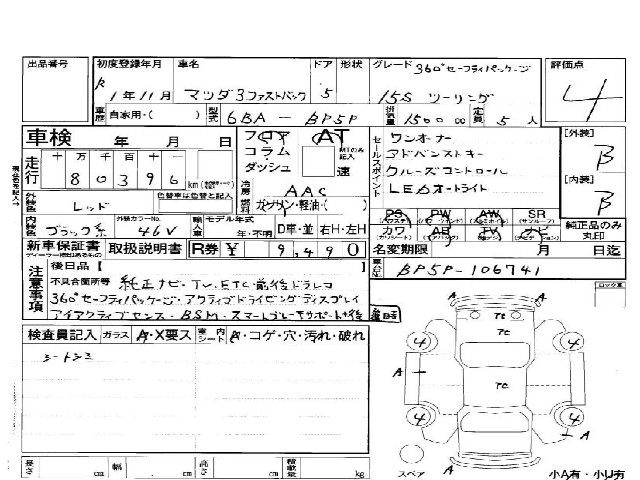 出品番号
初度登録年月 車名 ドア 形状 グレード 360°セーフティパッケージ 評価点
R 1年11月 マツダ3ファストバック 5 15S ツーリング 4
車歴 自家用・( ) 型式 6BA-BP5P 排気量 1500 cc 定員 5人
車検 年 月 日
フロア コラム ダッシュ AT MTのみ記入 速
セールスポイント
ワンオーナー
アドバンストキー
クルーズコントロール
LEDオートライト
[外装] B
[内装] B
走行 十万千百十一
80396 km
外装色 色替車は色替と記入
レッド
冷房 AAC
燃料 ガソリン・軽油・( )
内装色 ブラック系 外装カラーNo. 46V
輸入車 モデル年式 年・不明 D車・並 右H・左H
PS PW AW SR (サンルーフ)
カワ AB TV ナビ
純正品のみ丸印
新車保証書 取扱説明書 R券 ¥ 9,490
名変期限 月 日迄
注意事項 後日品【 】
不具合箇所等 純正ナビ・TV・ETC・前後ドラレコ
360°セーフティパッケージ・アクティブドライビングディスプレイ
アイアクティブセンス・BSM・スマートブレーキサポート
BP5P-106741
ロック車
検査員記入 ガラス A・X要ス 室内シート A・コゲ・穴・汚れ・破れ
シートシミ
Te
4 4
A A
Te
4 4
A
A
スペア 小A有・小U有
長さ cm 幅 cm 高さ cm 積載量 kg